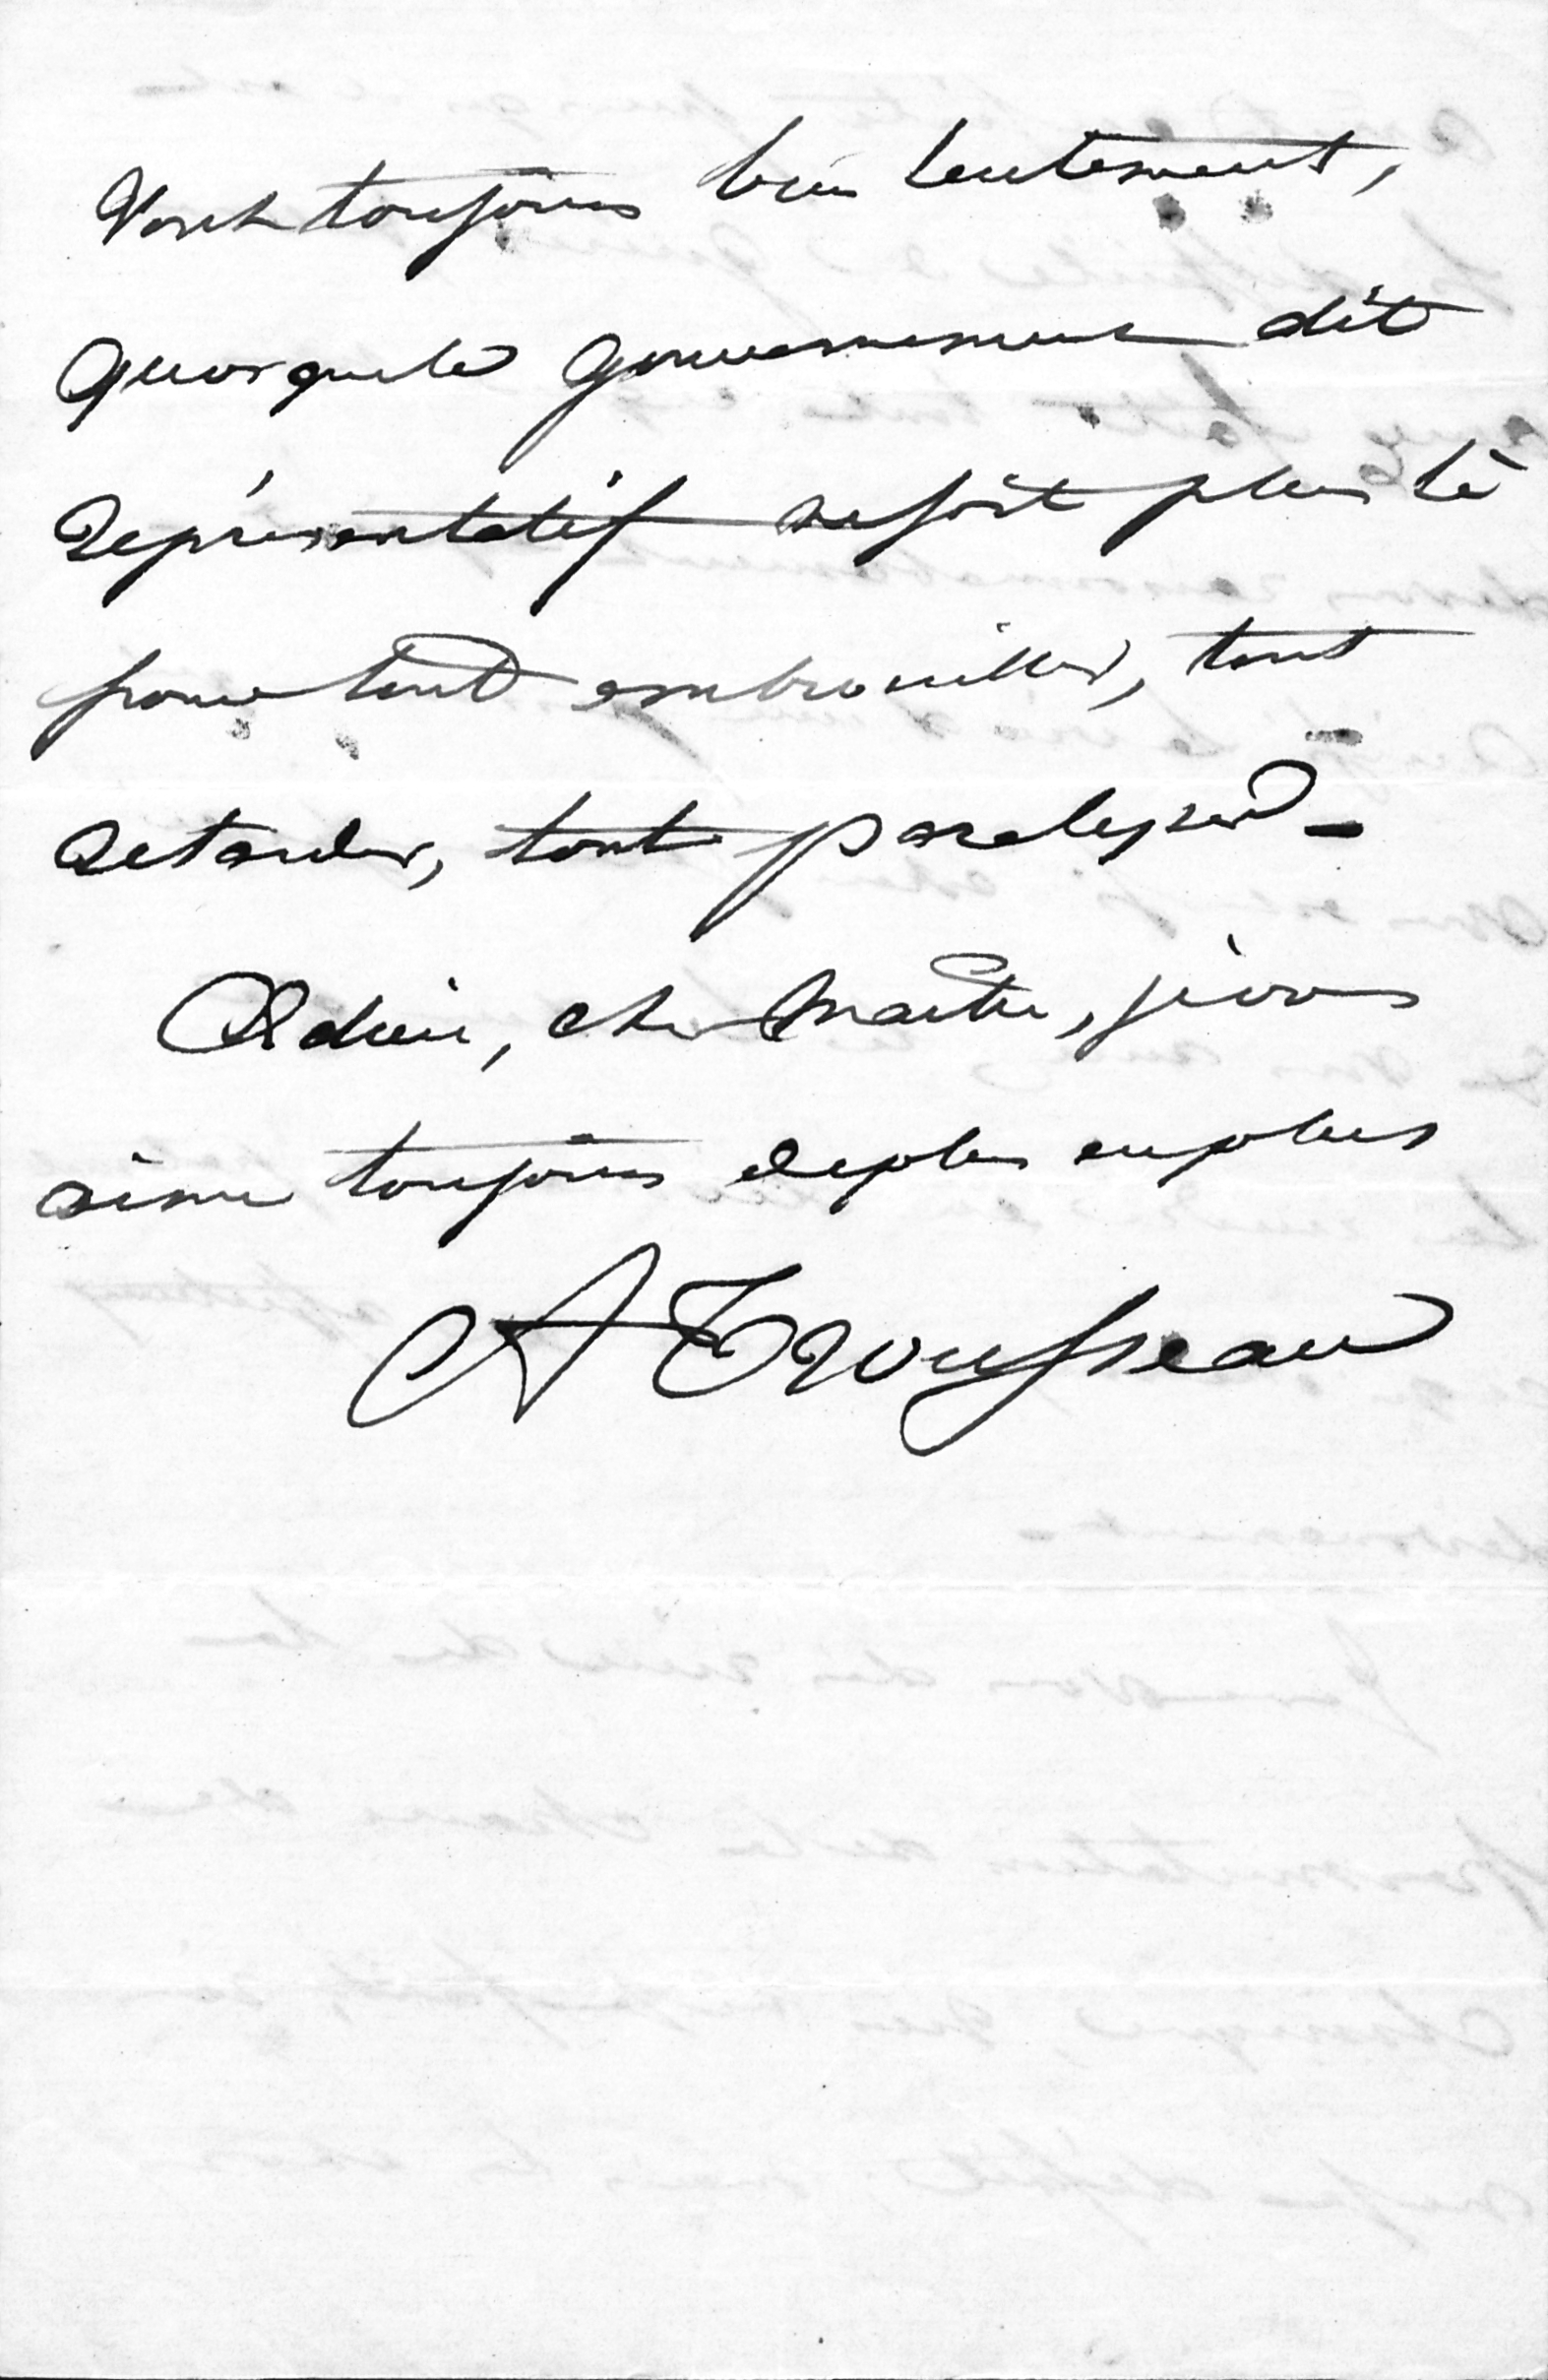 vont toujours bien lentement,
quoique le gouvernement dit
représentatif ne soit plus là
pour tout embrouiller, tout
retarder, tout paralyser -
Adieu, cher Maître, je vous
aime toujours de plus en plus
A Trousseau